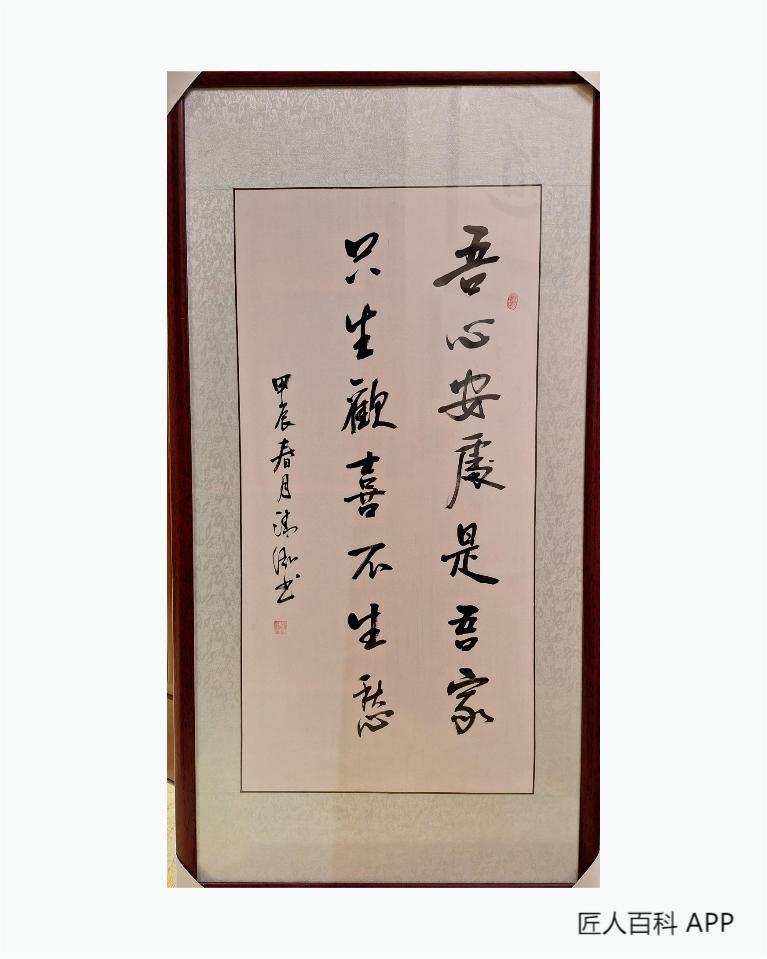 吾心安處是吾家
只生歡喜不生愁
甲辰春月
書
匠人百科 APP